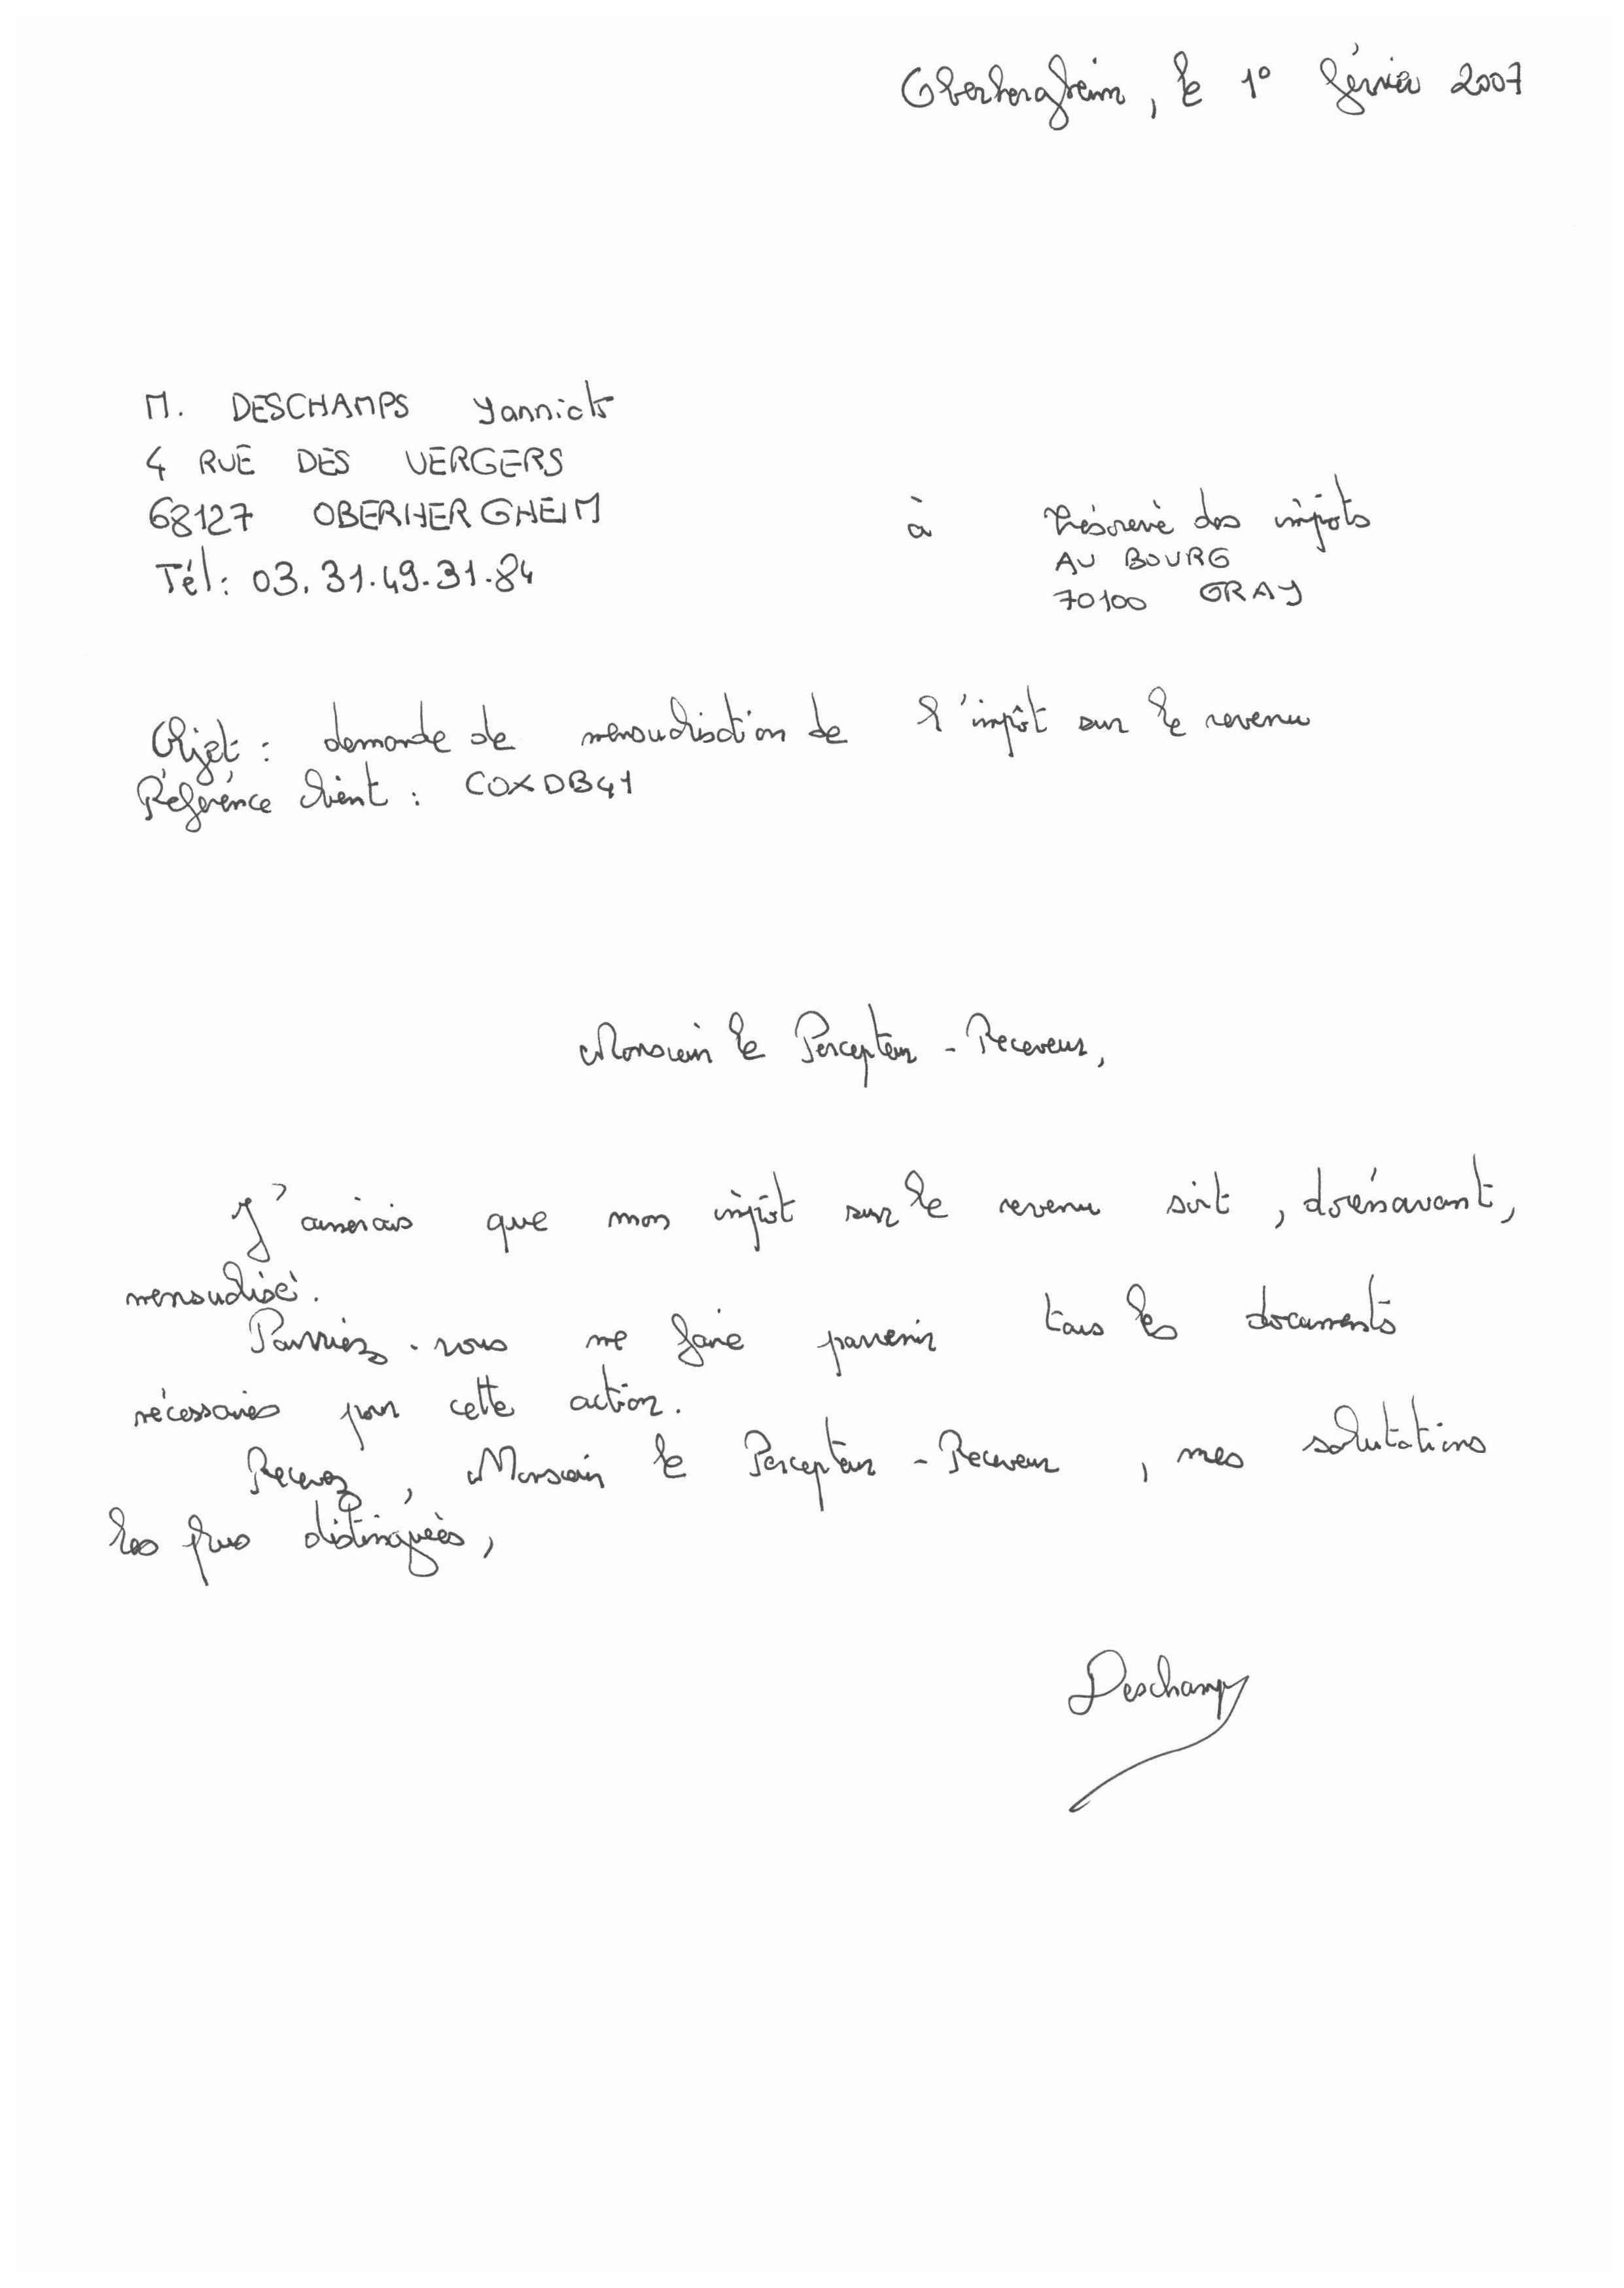 Oberhergheim, le 1° février 2007
M. DESCHAMPS Yannick
4 RUE DES VERGERS
68127 OBERHERGHEIM
Tél: 03.31.49.31.84
à Trésorerie des impôts
AU BOURG
70100 GRAY
Objet : demande de mensualisation de l'impôt sur le revenu
Référence client : COXDB41
Monsieur le Percepteur - Receveur,
J'aimerais que mon impôt sur le revenu soit, dorénavant,
mensualisé.
Pourriez-vous me faire parvenir tous les documents
nécessaires pour cette action.
Recevez, Monsieur le Percepteur - Receveur, mes salutations
les plus distinguées,
Deschamps